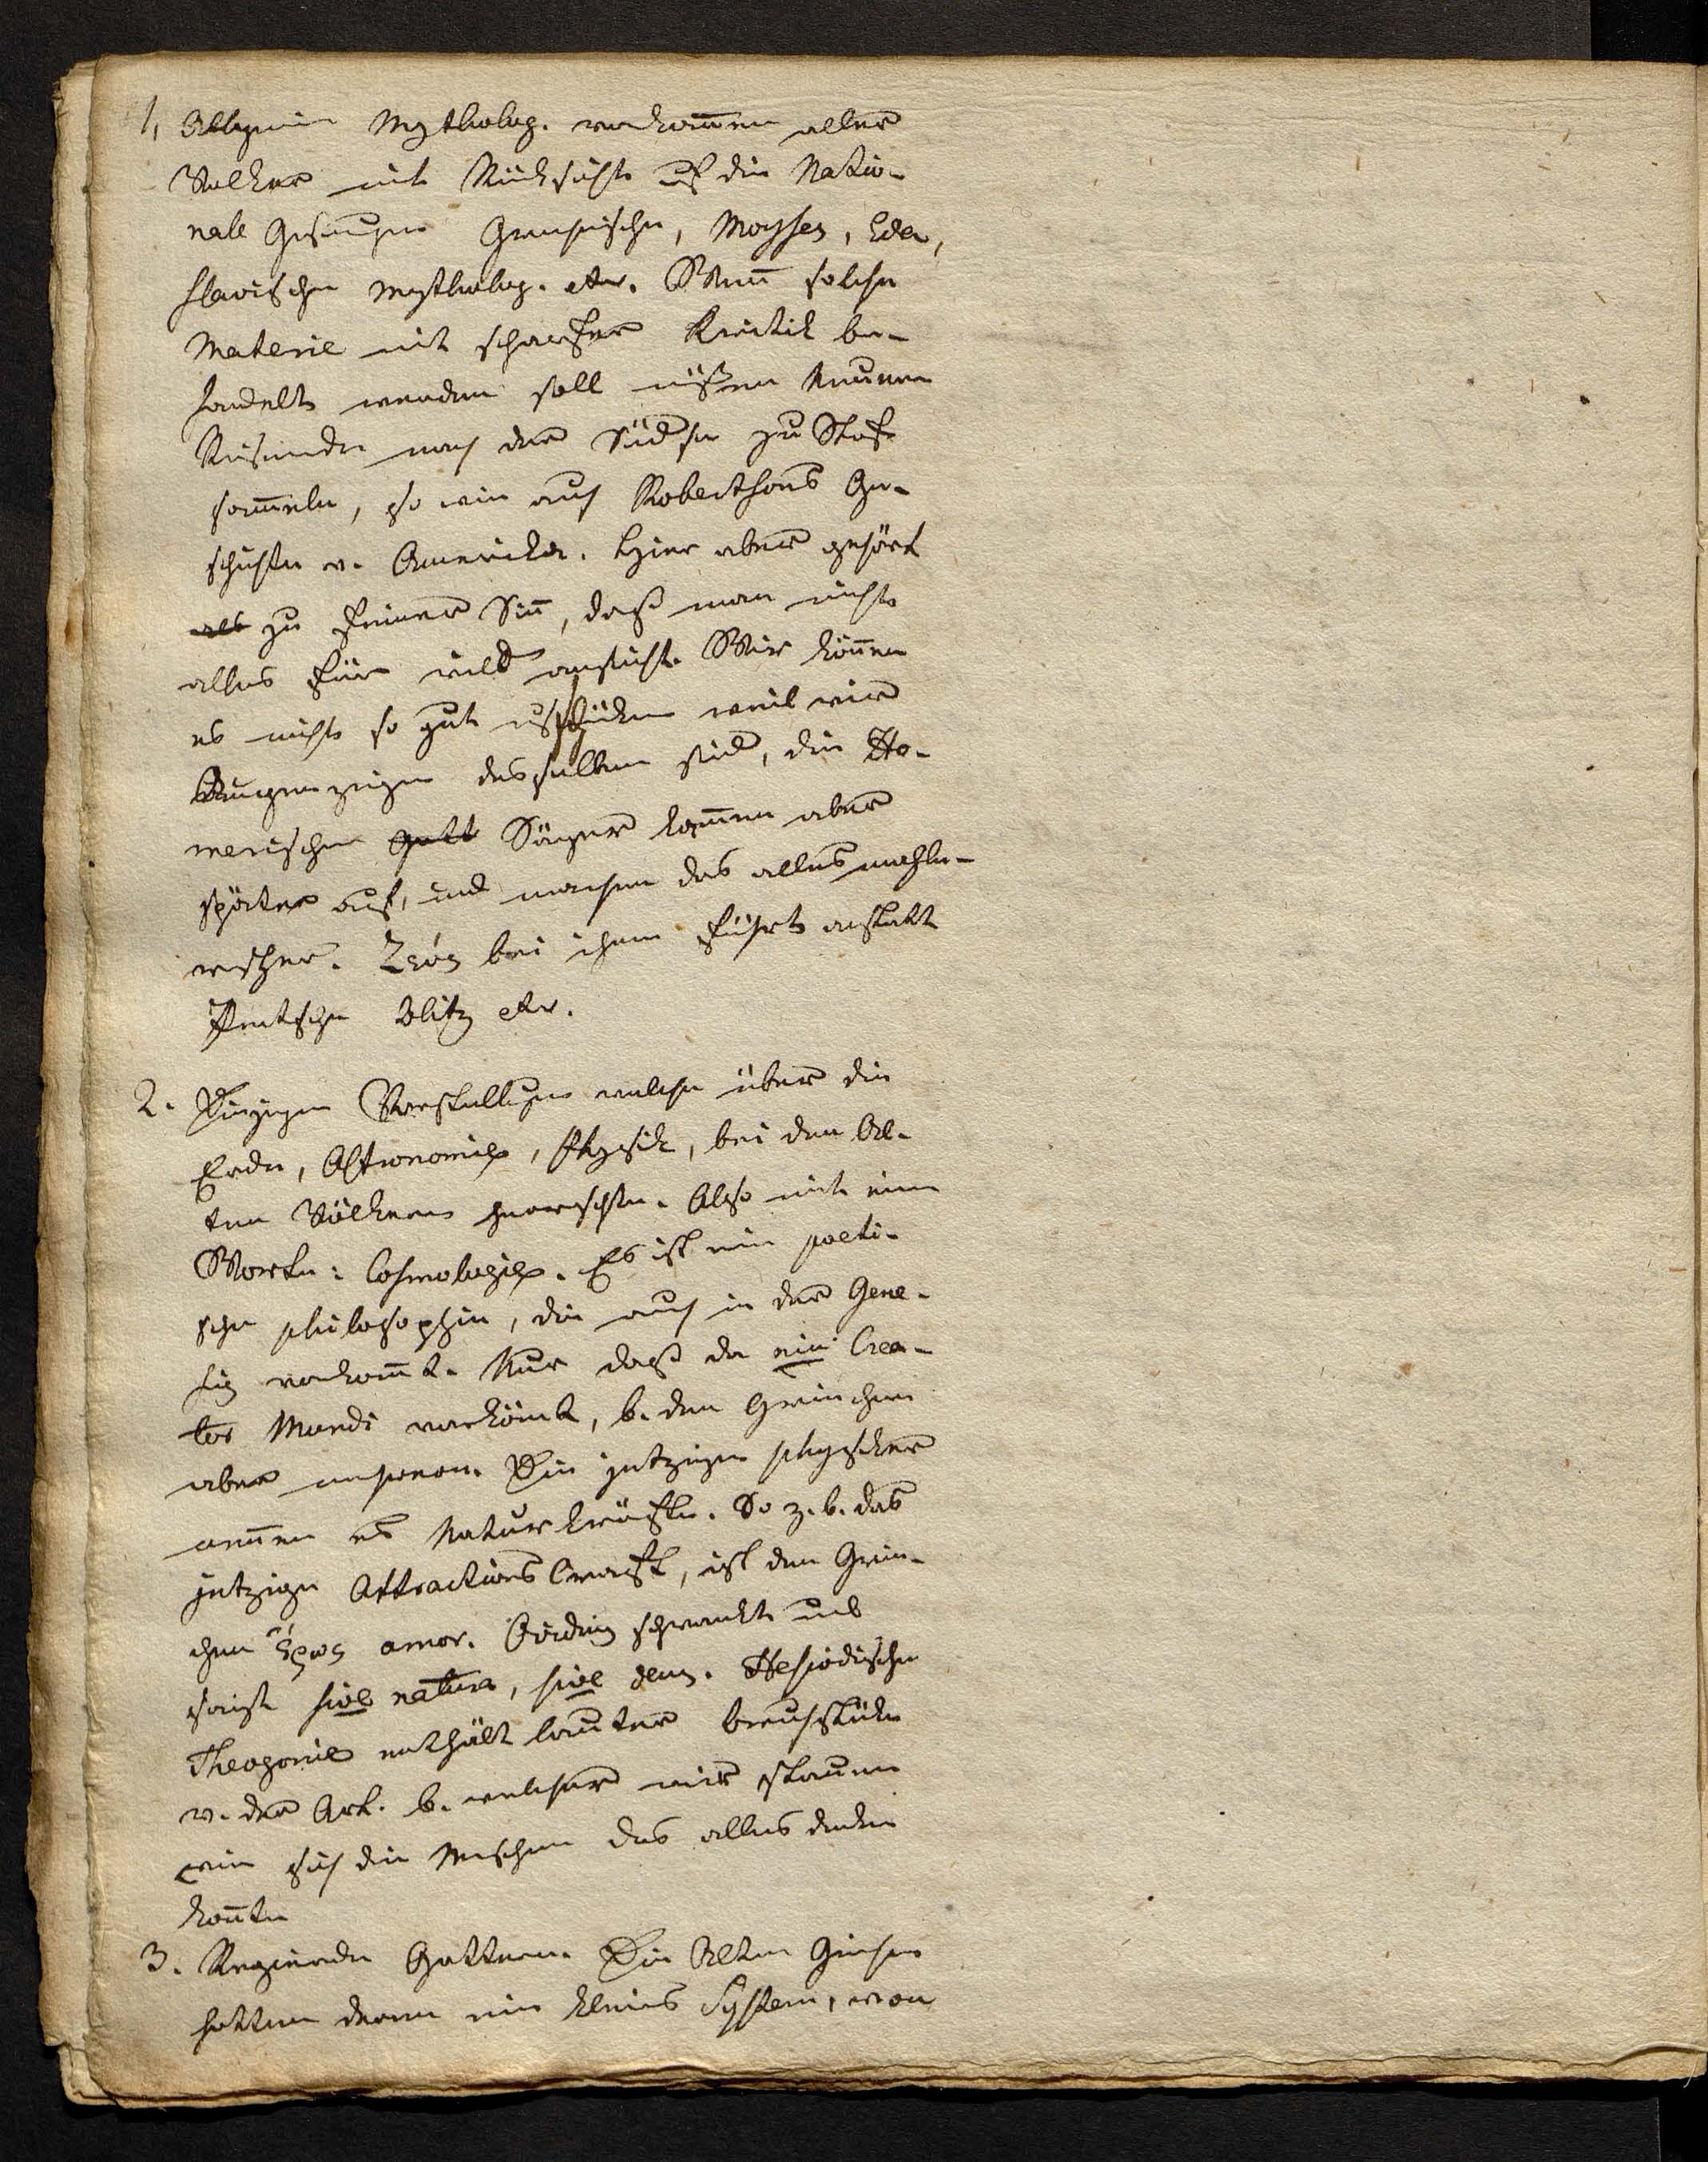 1, Allgemein Mytholog. vorkom̄en aller
Volker mit Rücksicht uf die Natio-
nale Gesaenge Griechische, Moyses, Eda,
slavischen Mytholog. etc. Wen̄ solche
Materie mit scharfer Kritik be-
handelt werden soll müßen Neuere
Reisende nach der Südsee zu Stof
sam̄eln, so wie auch Robertsons Ge-
schichte v. America. Hier aber gehört
als zu feiner Sin̄, daß man nicht
alles für wild ansicht. Wir kön̄en
es nicht so gut weil wir
Augenzeigen desselben sind, die Ho-
merischen Gott Sänger kom̄en aber
später auf, und machen das alles mahle-
rischer. Ζεύς bei ihm führt anstatt
Peitsche Blitz etc.
2. Diejenigen Vorstellungen welche über die
Erde, Astronomie, Physik, bei den Al-
ten Völkern herrschten. Also mit einem
Worte: Cosmologie. Es ist eine poeti-
sche philosophie, die auch in der Gene-
sis vorkom̄t. Nur daß da ein Crea-
tor Mundi vorkömt, b. den Griechen
aber mehrere. Die jetzigen physicker
nennen es Naturkräfte. So z. b. das
jetzige Attractions Craft, ist den Grie-
chen ἔρως amor. Ovidius schwankt und
sagt sive natura, sive deus. Hesiodische
Theogonie enthält lauter bruchstücke
v. der Art. b. welcher wir staunen
wie sich die Menschen das alles denken
kon̄ten
3. Regierende Götter. Die Alten Griechen
hatten deren ein kleines System, von